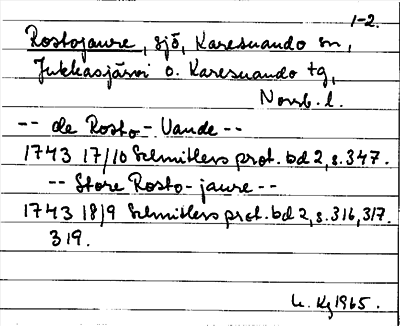 1-2.
Rostojaure, sjö, Karesuando sn,
Jukkasjärvi o. Karesuando tg,
Norrb. l.
-- de Rosto-Vande --
1743 17/10 Schnitlers prot. bd 2, s. 347.
-- Store Rosto-jaure --
1743 18/9 Schnitlers prot. bd 2, s. 316, 317.
319.
1965.